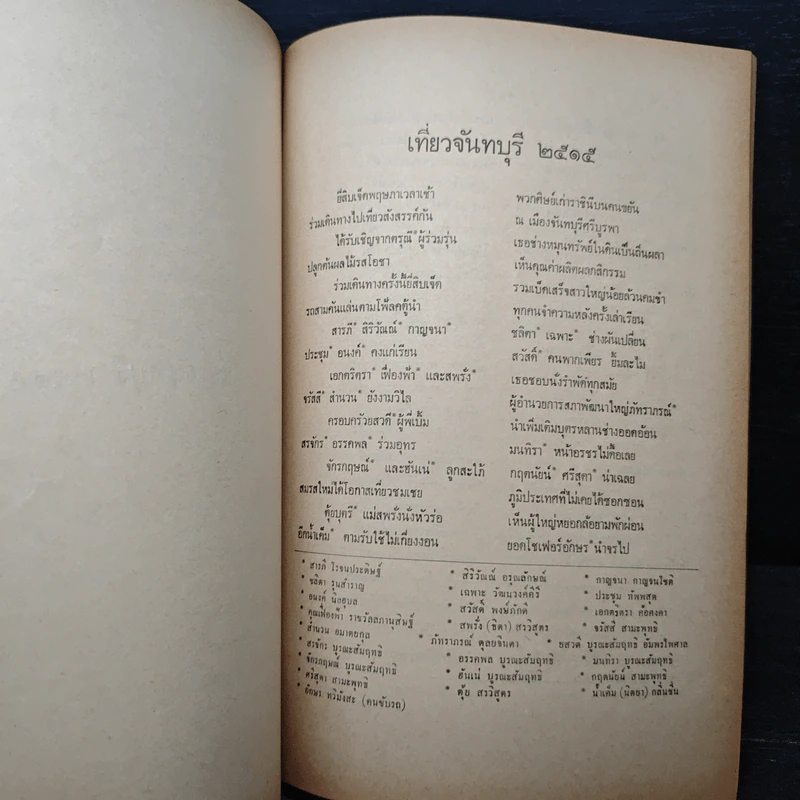 เที่ยวจันทบุรี ๒๕๑๕
ยี่สิบเจ็ดพฤษภาเวลาเช้า พวกศิษย์เก่าราชินีบนคนขยัน
ร่วมเดินทางไปเที่ยวสังสรรค์กัน ณ เมืองจันทบุรีศรีบูรพา
ได้รับเชิญจากครุณี* ผู้ร่วมรุ่น เธอช่างหมุนทรัพย์ในดินเป็นถิ่นผลา
ปลูกต้นผลไม้รสโอชา เห็นคุณค่าผลิตผลกสิกรรม
ร่วมเดินทางครั้งนี้ยี่สิบเจ็ด รวมเบ็ดเสร็จสาวใหญ่น้อยล้วนคมขำ
รถสามคันแล่นตามโฟล์คตู้นำ ทุกคนจำความหลังครั้งเล่าเรียน
สารภี* สิริวัณณ์* กาญจนา* ชลิดา* เฉพาะ* ช่างผันเปลี่ยน
ประชุม* อนงค์* คงแก่เรียน สวัสดิ์* คนพากเพียร ยิ้มละไม
เอกตริตรา* เฟื่องฟ้า* และสพรั่ง* เธอชอบนั่งรำพัดทุกสมัย
จรัสสี* สำนวน* ยังงามวิไล ผู้อำนวยการสภาพัฒนาใหญ่ภัทราภรณ์*
ครอบครัวยสวดี* ผู้พี่เบิ้ม นำเพิ่มเติมบุตรหลานช่างออดอ้อน
สรจักร* อรรคพล* ร่วมอุทร มนทิรา* หน้าอรชรไม่ดื้อเลย
จักรกฤษณ์* และฮันเน่* ลูกสะใภ้ กฤตนัยน์* ศรีสุดา* น่าเฉลย
สมรสใหม่ได้โอกาสเที่ยวชมเชย ภูมิประเทศที่ไม่เคยได้ซอกซอน
ตุ้ยบุตรี* แม่สพรั่งนั่งหัวร่อ เห็นผู้ใหญ่หยอกล้อยามพักผ่อน
อีกน้ำเค็ม* ตามรับใช้ไม่เกี่ยงงอน ยอดโชเฟอร์อักษร* นำจรไป
* สารภี โรจนประดิษฐ์ * สิริวัณณ์ อรุณลักษณ์ * กาญจนา กาญจนโชติ
* ชลิดา รุนสำราญ * เฉพาะ วัฒนวงค์คีรี * ประชุม ทัพพสุต
* อนงค์ นิลอุบล * สวัสดิ์ พงษ์ภักดี * เอกตริตรา คอคงคา
* คุณเฟื่องฟ้า ราชวัลลภานุสิษฐ์ * สพรั่ง (ชิดา) สรวิสูตร * จรัสสี สามะพุทธิ
* สำนวน อมาตยกุล * ภัทราภรณ์ ตุลยจินดา * ยสวดี บูรณะสัมฤทธิ อัมพรไพศาล
* สรจักร บูรณะสัมฤทธิ * อรรคพล บูรณะสัมฤทธิ * มนทิรา บูรณะสัมฤทธิ
* จักรกฤษณ์ บูรณะสัมฤทธิ * ฮันเน่ บูรณะสัมฤทธิ * กฤตนัยน์ สามะพุทธิ
* ศรีสุดา สามะพุทธิ * ตุ้ย สรวิสูตร * น้ำเค็ม (นิตยา) กลิ่นชื่น
* อักษร ทวิมังสะ (คนขับรถ)